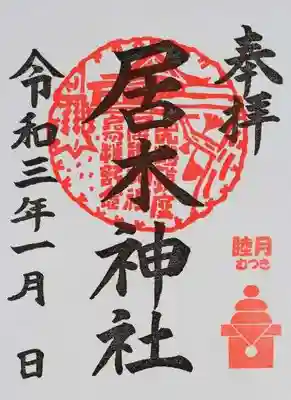 奉拝
居木神社
令和三年一月 日
睦月
むつき